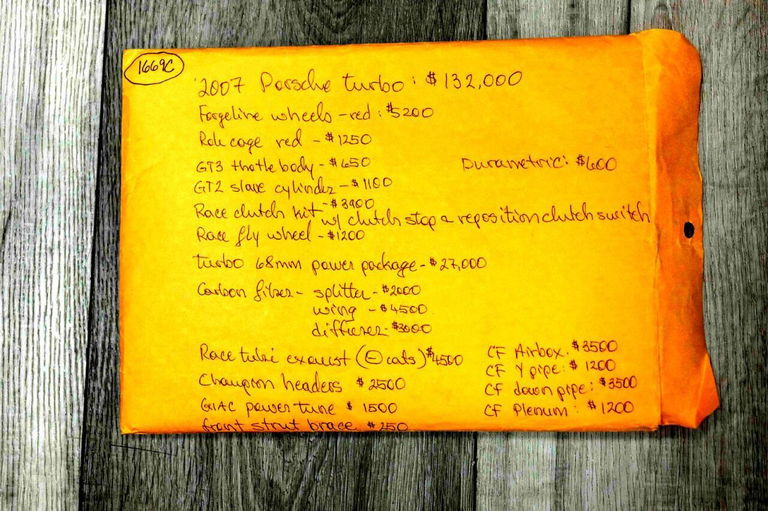 1669C
2007 Porsche turbo: $132,000
Forgeline wheels - red: $5200
Role cage red - $1250
GT3 throtle body - $650
Durametric: $600
GT2 slave cylinder - $1100
Race clutch kit - $3900 w/ clutch stop a reposition clutch switch
Race fly wheel - $1200
turbo 68mm power package - $27,000
Carbon fiber - splitter - $2000
wing - $4500
diffuser - $3000
Race tubi exaust (- cats) $4500
CF Airbox: $3500
CF Y pipe: $1200
Champion headers $2500
CF down pipe: $3500
GIAC power tune $1500
CF Plenum: $1200
front strut brace $250